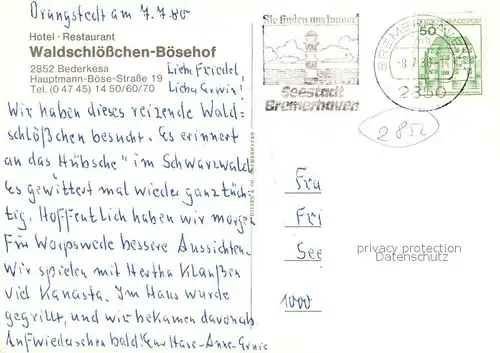 Drangstedt am 7.7.80
Hotel · Restaurant
Waldschlößchen-Bösehof
2852 Bederkesa
Hauptmann-Böse-Straße 19
Tel. (0 47 45) 14 50/60/70
Liebe Friedel,
Lieber Erwin!
Wir haben dieses reizende Wald-
schlößchen besucht. Es erinnert
an das "Hübsche" im Schwarzwald.
Es gewittert mal wieder ganz tüch-
tig. Hoffentlich haben wir morgen
für Worpswede bessere Aussichten.
Wir spielen mit Hertha Klanßen
viel Kanasta. Im Haus wurde
gegrillt, und wir bekamen davon ab.
Auf Wiedersehen bald!
Sie finden uns immer
Seestadt
Bremerhaven
BREMERHAVEN
-8.7.80
2850
50
DEUTSCHE BUNDESPOST
2852
Fra
Fri
See
1000
privacy protection
Datenschutz